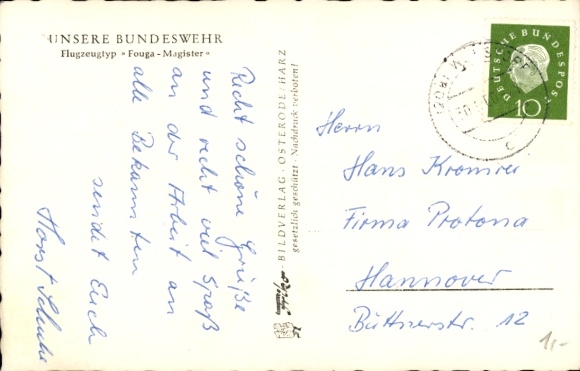 UNSERE BUNDESWEHR
Flugzeugtyp »Fouga-Magister«
Recht schöne Grüße
und recht viel Spaß
an der Arbeit an
alle Bekannten
sendet Euch
Horst
BILDVERLAG · OSTERODE · HARZ
gesetzlich geschützt · Nachdruck verboten!
DEUTSCHE BUNDESPOST
10
c
Herrn
Hans Kromrer
Firma Protona
Hannover
Büttnerstr. 12
1,-